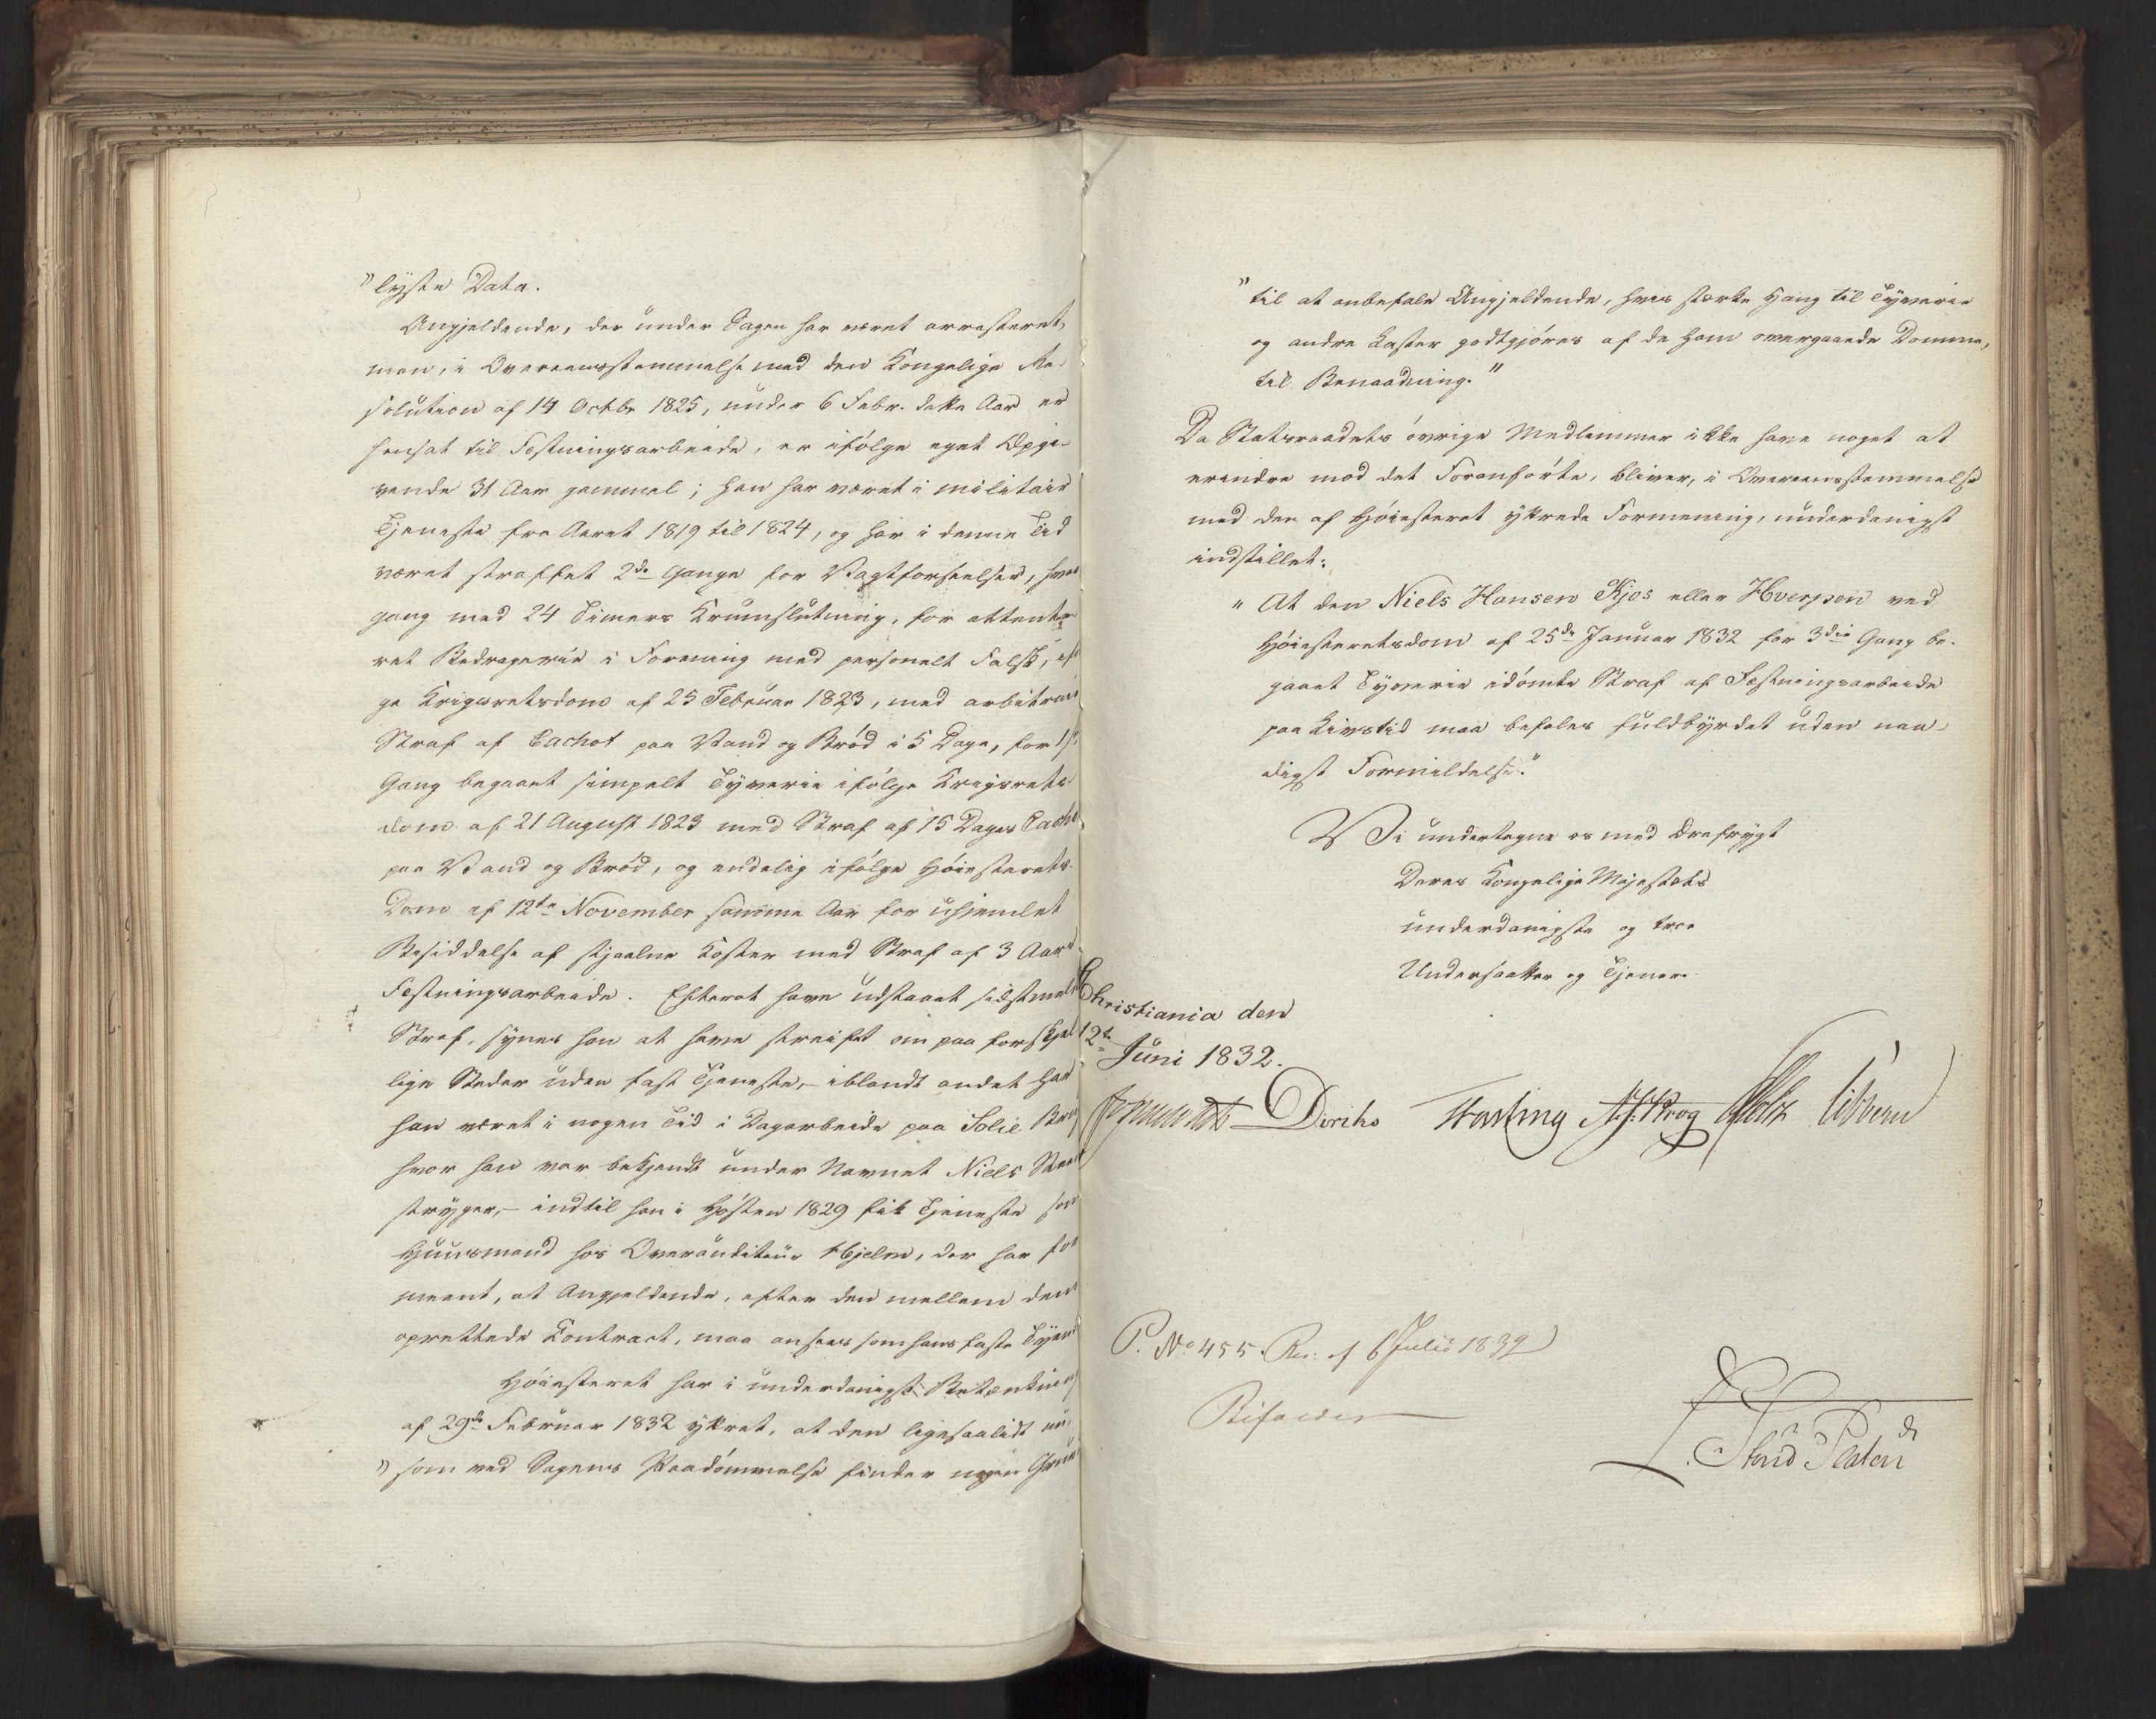 "lyste Data.
Angjeldende, der under Sagen har været arresteret,
men, i Overeensstemmelse med den Kongelige Re-
solution af 14 Octbr 1825, under 6 Febr. dette Aar er
hensat til Fæstningsarbeide, er ifølge eget Opgi-
vende 31 Aar gammel; han har været i militair
Tjeneste fra Aaret 1819 til 1824, og har i denne Tid
været straffet 2de Gange for Vagtforseelser, hver
gang med 24 Timers Krumslutning, for attente-
ret Bedragerie i Forening med personelt Falsk, ifl
ge Krigsretsdom af 25 Februar 1823, med arbitrair
Straf af Cachot paa Vand og Brød i 5 Dage, for 1ste
Gang begaaet simpelt Tyverie ifølge Krigsrets-
dom af 21 August 1823 med Straf af 15 Dages Cacho
paa Vand og Brød, og endelig ifølge Høiesterets-
Dom af 12te November samme Aar for uhjemlet
Besiddelse af stjaalne Koster med Straf af 3 Aars
Fæstningsarbeide. Efterat have udstaaet sidstmeldte
Straf, synes han at have streifet om paa forskjel-
lige Steder uden fast Tjeneste, – iblandt andet har
han været i nogen Tid i Dagarbeide paa Solie Brug
hvor han var bekjendt under Navnet Niels
stryger, – indtil han i Høsten 1829 fik Tjeneste som
Huusmand hos Overauditeur Hjelm, der har for
meent, at Angjeldende, efter den mellem dem
oprettede Contract, maa ansees som hans faste Tjener
Høiesteret har i underdanigst Betænkning
af 29de Februar 1832 yttret, at den ligesaalidt nu,
"som ved Sagens Paadømmelse finder nogen Grund
"til at anbefale Angjeldende, hvis stærke Hang til Tyverie
og andre Laster godtgjøres af de ham overgaaede Domme,
til Benaadning."
Da Statsraadets øvrige Medlemmer ikke have noget at
erindre mod det Foranførte, bliver, i Overeensstemmelse
med den af Høiesteret yttrede Formening, underdanigst
indstillet:
"At den Niels Hansen Kjos eller Hverpen ved
Høiesteretsdom af 25de Januar 1832 for 3die Gang be-
gaaet Tyverie idømte Straf af Fæstningsarbeide
paa Livstid maa befales fuldbyrdet uden naa-
digst Formildelse."
Vi undertegne os med Ærefrygt
Deres Kongelige Majestæts
underdanigste og troe
Undersaatter og Tjenere.
Christiania den
12te Juni 1832.
Diriks Fasting Krog Holst Vibe
P. No 455. Res. af 6 Julii 1832
Bifaldes
Stând Platen